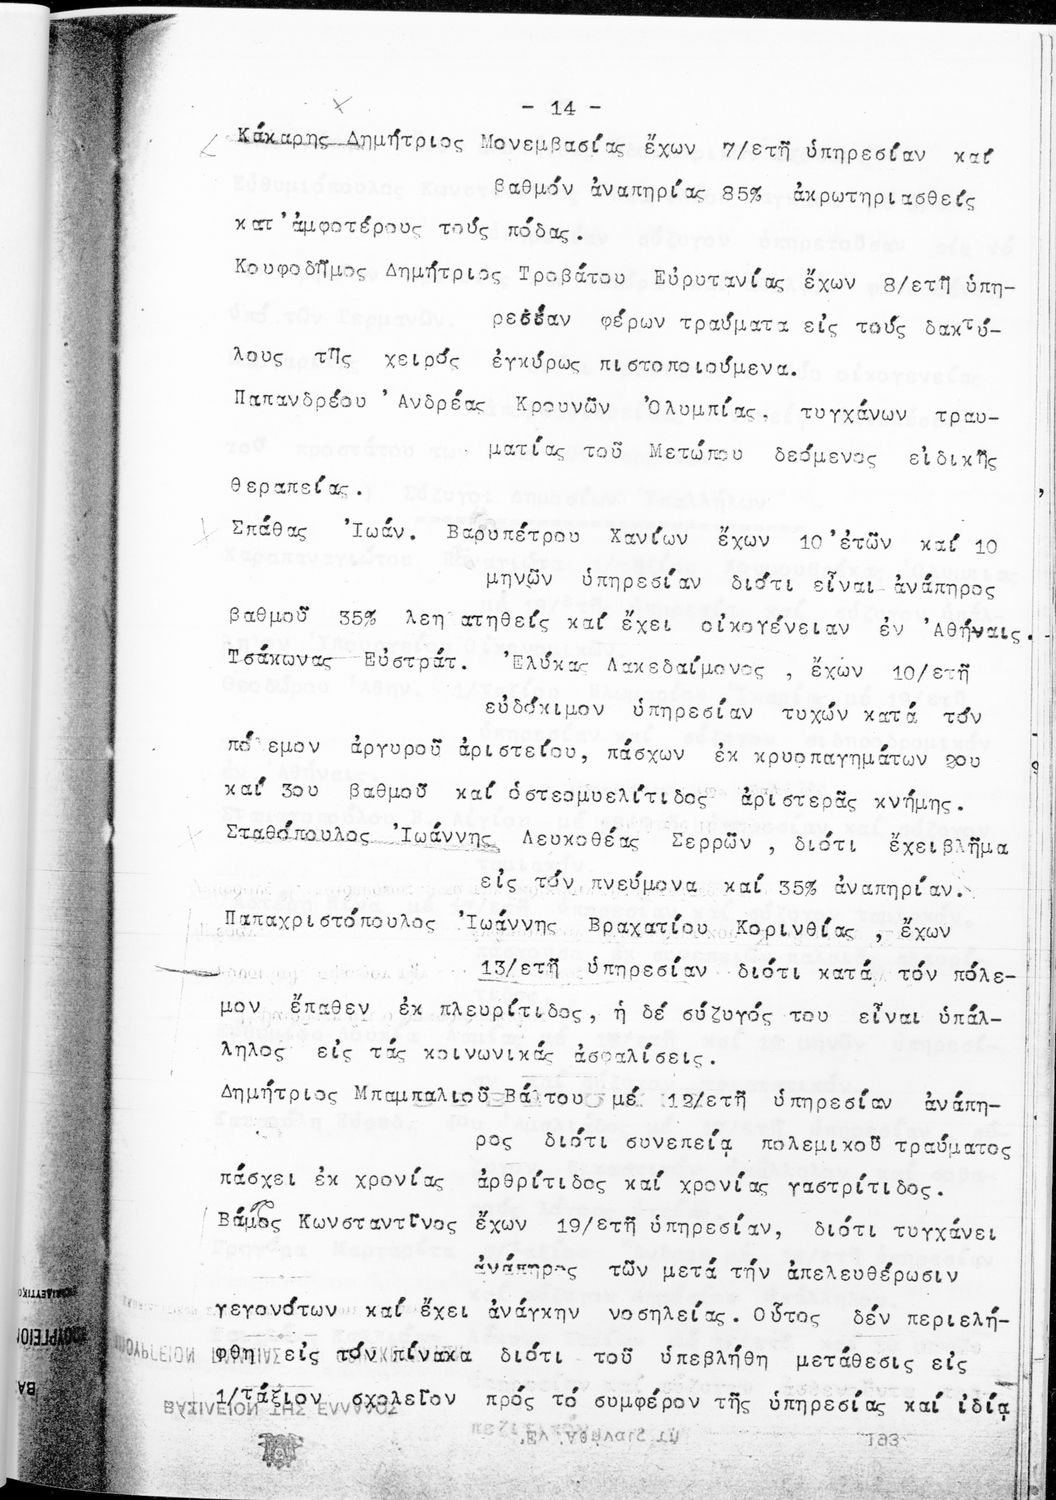 - 14 -
Κάκαρης Δημήτριος Μονεμβασίας ἔχων 7/ετῆ ὑπηρεσίαν καί
βαθμόν ἀναπηρίας 85% ἀκρωτηριασθείς
κατ'ἀμφοτέρους τούς πόδας.
Κουφοδῆμος Δημήτριος Τροβάτου Εὐρυτανίας ἔχων 8/ετῆ ὑπη-
ρεσίαν φέρων τραύματα εἰς τούς δακτύ-
λους τῆς χειρός ἐγκύρως πιστοποιούμενα.
Παπανδρέου 'Ανδρέας Κρουνῶν 'Ολυμπίας, τυγχάνων τραυ-
ματίας τοῦ Μετώπου δεόμενος εἰδικῆς
θεραπείας.
Σπάθας 'Ιωάν. Βαρυπέτρου Χανίων ἔχων 10'ἐτῶν καί 10
μηνῶν ὑπηρεσίαν διότι εἶναι ἀνάπηρος
βαθμοῦ 35% λεηλατηθείς καί ἔχει οἰκογένειαν ἐν 'Αθήναις.
Τσάκωνας Εὐστράτ. 'Ελύκας Λακεδαίμονος, ἔχων 10/ετῆ
εὐδόκιμον ὑπηρεσίαν τυχών κατά τόν
πόλεμον ἀργυροῦ ἀριστείου, πάσχων ἐκ κρυοπαγημάτων 2ου
καί 3ου βαθμοῦ καί ὀστεομυελίτιδος ἀριστερᾶς κνήμης.
Σταθόπουλος 'Ιωάννης Λευκοθέας Σερρῶν, διότι ἔχει βλῆμα
εἰς τόν πνεύμονα καί 35% ἀναπηρίαν.
Παπαχριστόπουλος 'Ιωάννης Βραχατίου Κορινθίας, ἔχων
13/ετῆ ὑπηρεσίαν διότι κατά τόν πόλε-
μον ἔπαθεν ἐκ πλευρίτιδος, ἡ δέ σύζυγός του εἶναι ὑπάλ-
ληλος εἰς τάς κοινωνικάς ἀσφαλίσεις.
Δημήτριος Μπαμπαλιοῦ Βάλτου μέ 12/ετῆ ὑπηρεσίαν ἀνάπη-
ρος διότι συνεπείᾳ πολεμικοῦ τραύματος
πάσχει ἐκ χρονίας ἀρθρίτιδος καί χρονίας γαστρίτιδος.
Βάμβος Κωνσταντῖνος ἔχων 19/ετῆ ὑπηρεσίαν, διότι τυγχάνει
ἀνάπηρος τῶν μετά τήν ἀπελευθέρωσιν
γεγονότων καί ἔχει ἀνάγκην νοσηλείας. Οὗτος δέν περιελή-
φθη εἰς τόν πίνακα διότι τοῦ ὑπεβλήθη μετάθεσις εἰς
1/τάξιον σχολεῖον πρός τό συμφέρον τῆς ὑπηρεσίας καί ἰδίᾳ